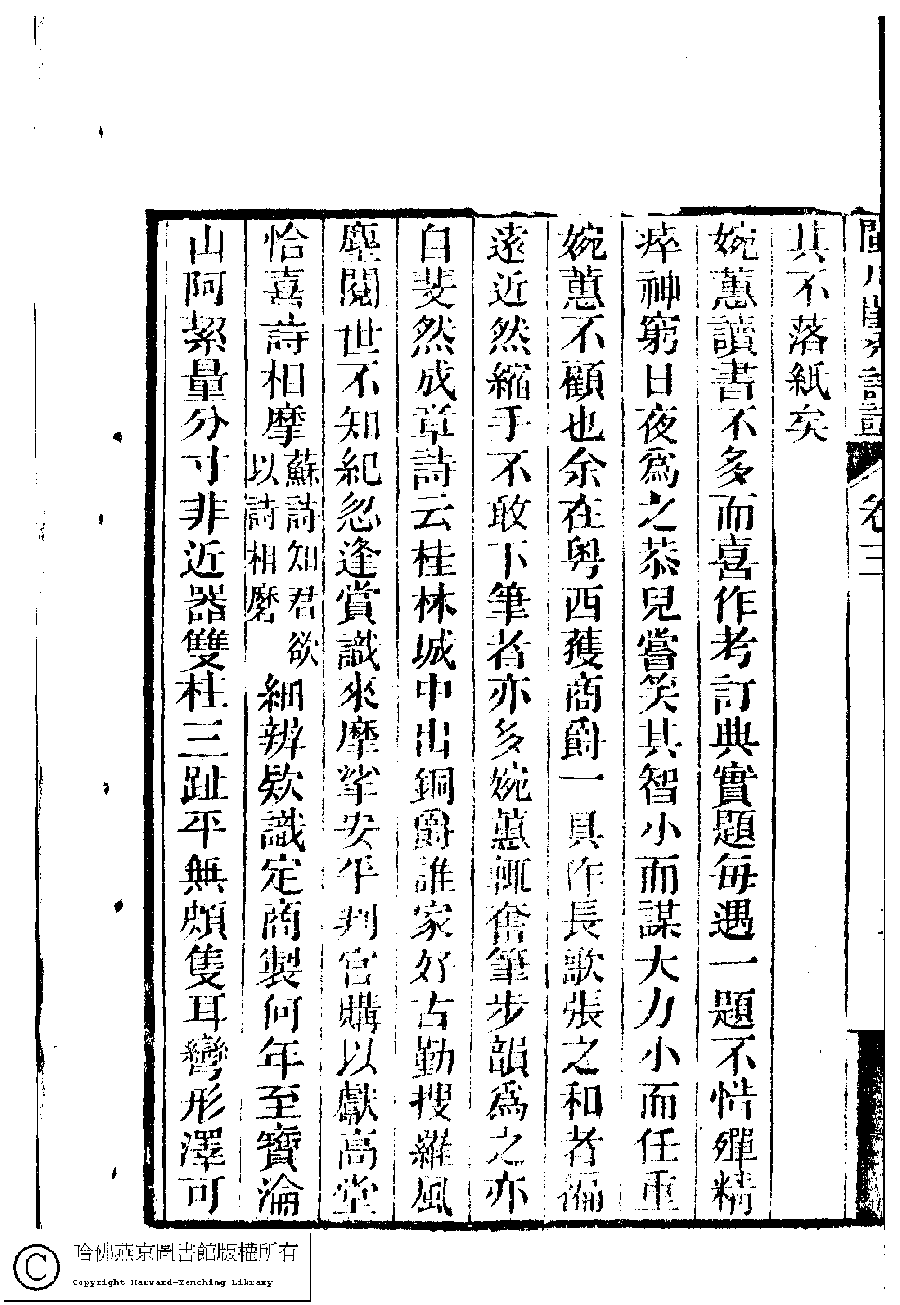 閩川閨秀詩話 卷三
其不落紙矣
婉蕙讀書不多而喜作考訂典實題每遇一題不惜殫精
瘁神窮日夜爲之恭兒嘗笑其智小而謀大力小而任重
婉蕙不顧也余在粵西獲商爵一具作長歌張之和者徧
遠近然縮手不敢下筆者亦多婉蕙輒奮筆步韻爲之亦
自斐然成章詩云桂林城中出銅爵誰家好古勤搜羅風
塵閱世不知紀忽逢賞識來摩挲安平判官購以獻高堂
恰喜詩相摩蘇詩知君欲以詩相磨細辨欵識定商製何年至寶淪
山阿絜量分寸非近器雙柱三趾平無頗隻耳彎形澤可
哈佛燕京圖書館版權所有
Copyright Harvard-Yenching Library